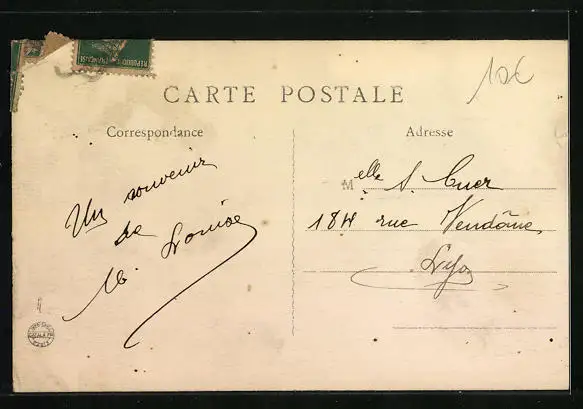 RÉPUBLIQUE FRANÇAISE
10€
CARTE POSTALE
Correspondance
Adresse
Un souvenir
de
M. Louise
Melle S. Cuer
184 rue Vendôme,
Lyon